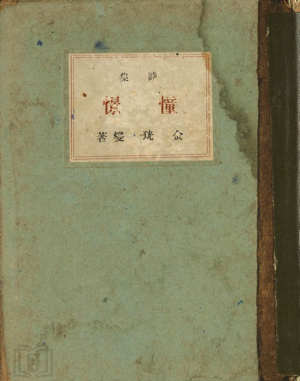 詩集
憧憬
金珖燮著